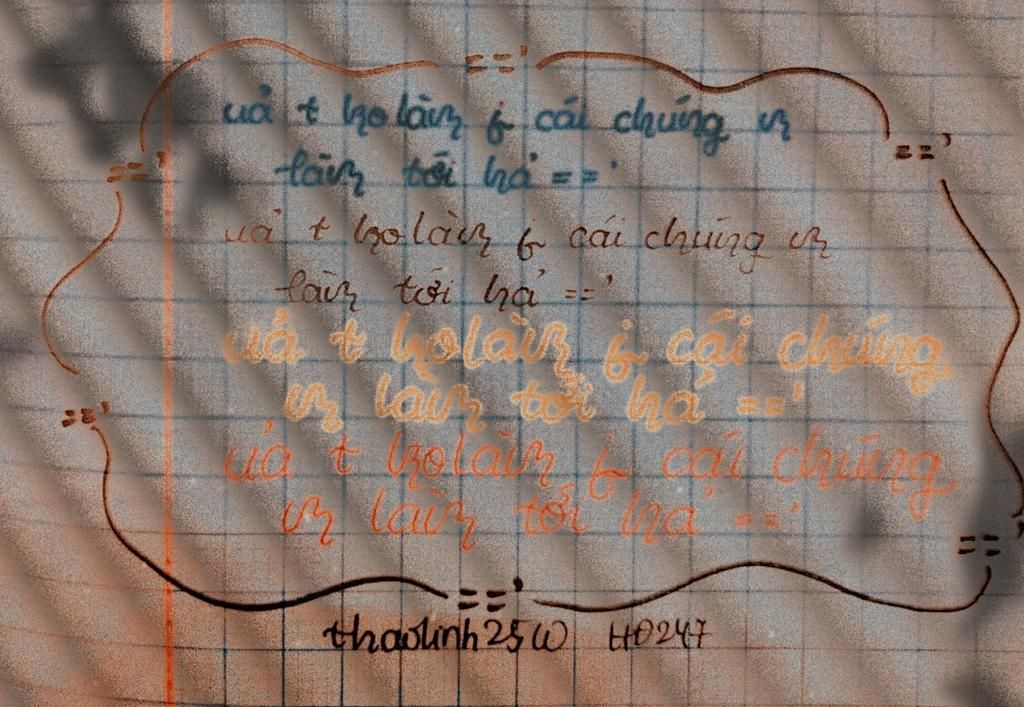 =='
uả t ko làm j cái chúng m
=='
=='
làm tới hả =='
uả t ko làm j cái chúng m
làm tới hả =='
uả t ko làm j cái chúng
m làm tới hả =='
=='
uả t ko làm j cái chúng
m làm tới hả =='
=='
=='
thaolinh25w HĐ247